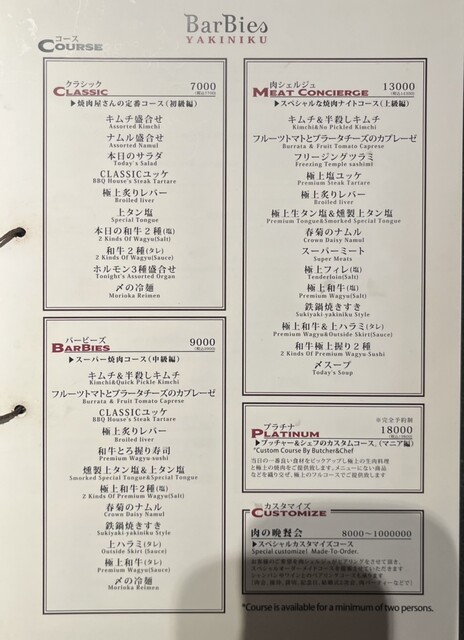 BarBies
YAKINIKU
コース
COURSE
クラシック
CLASSIC
7000
(税込7700)
▶焼肉屋さんの定番コース(初級編)
キムチ盛合せ
Assorted Kimchi
ナムル盛合せ
Assorted Namul
本日のサラダ
Today's Salad
CLASSICユッケ
BBQ House's Steak Tartare
極上炙りレバー
Broiled liver
上タン塩
Special Tongue
本日の和牛2種(塩)
2 Kinds Of Wagyu(Salt)
和牛2種(タレ)
2 Kinds Of Wagyu(Sauce)
ホルモン3種盛合せ
Tonight's Assorted Organ
〆の冷麺
Morioka Reimen
バービーズ
BARBIES
9000
(税込9900)
▶スーパー焼肉コース(中級編)
キムチ&半殺しキムチ
Kimchi&Quick Pickle Kimchi
フルーツトマトとブラータチーズのカプレーゼ
Burrata & Fruit Tomato Caprese
CLASSICユッケ
BBQ House's Steak Tartare
極上炙りレバー
Broiled liver
和牛とろ握り寿司
Premium Wagyu-sushi
燻製上タン塩&上タン塩
Smorked Special Tongue&Special Tongue
極上和牛2種(塩)
2 Kinds Of Premium Wagyu(Salt)
春菊のナムル
Crown Daisy Namul
鉄鍋焼きすき
Sukiyaki-yakiniku Style
上ハラミ(タレ)
Outside Skirt (Sauce)
極上和牛(タレ)
Premium Wagyu(Sauce)
〆の冷麺
Morioka Reimen
肉シェルジュ
MEAT CONCIERGE
13000
(税込14300)
▶スペシャルな焼肉ナイトコース(上級編)
キムチ&半殺しキムチ
Kimchi&No Pickled Kimchi
フルーツトマトとブラータチーズのカプレーゼ
Burrata & Fruit Tomato Caprese
フリージングツラミ
Freezing Temple sashimi
極上塩ユッケ
Premium Steak Tartare
極上炙りレバー
Broiled liver
極上生タン塩&燻製上タン塩
Premium Tongue&Smorked Special Tongue
春菊のナムル
Crown Daisy Namul
スーパーミート
Super Meats
極上フィレ(塩)
Tenderloin(Salt)
極上和牛(塩)
Premium Wagyu(Salt)
鉄鍋焼きすき
Sukiyaki-yakiniku Style
極上和牛&上ハラミ(タレ)
Premium Wagyu&Outside Skirt(Sauce)
和牛極上握り2種
2 Kinds Of Premium Wagyu-Sushi
〆スープ
Today's Soup
※完全予約制
プラチナ
PLATINUM
18000
(税込19800)
▶ブッチャー&シェフのカスタムコース。(マニア編)
"Custom Course By Butcher&Chef
当日の一番良い食材をピックアップし極上の生肉料理
と極上の焼肉をご提供致します。メニューにない商品
などを織り交ぜ、極上のフルコースでご提供致します
カスタマイズ
CUSTOMIZE
肉の晩餐会
8000〜1000000
▶スペシャルカスタマイズコース
Special customize! Made-To-Order.
*Course is available for a minimum of two persons.